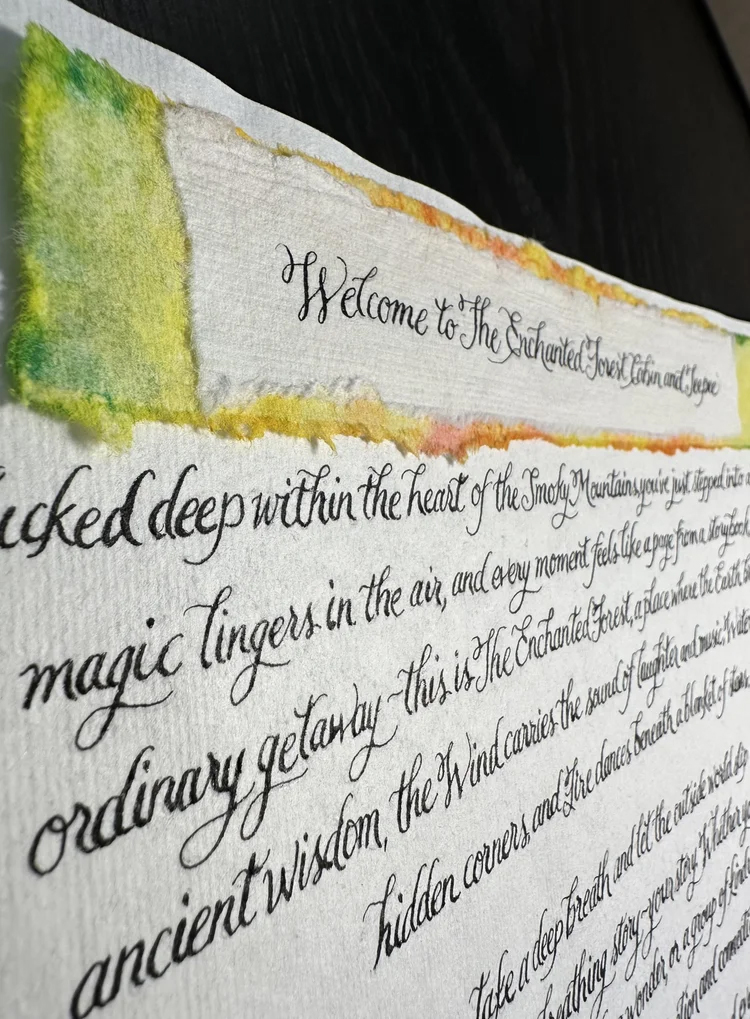 Welcome to The Enchanted Forest Cabin and Teepee
deep within the heart of the Smoky Mountains, you've just stepped into a
magic lingers in the air, and every moment feels like a page from a storybook.
ordinary getaway-this is The Enchanted Forest, a place where the Earth
ancient wisdom, the Wind carries the sound of laughter and music, Water
hidden corners, and Fire dances beneath a blanket of stars.
Take a deep breath and let the outside world slip
breathing story-your story. Whether
wonder, or a group of kindred
and